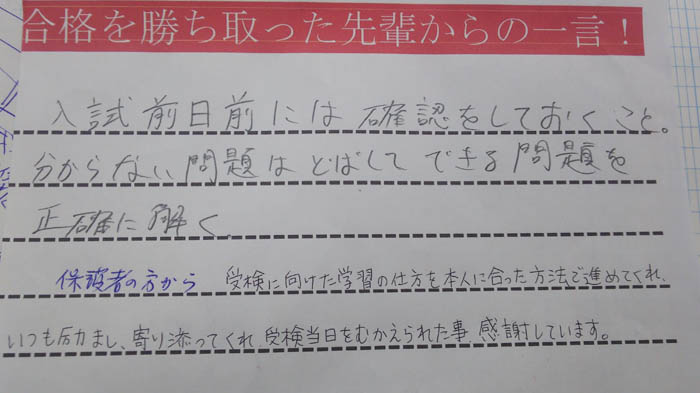 合格を勝ち取った先輩からの一言！
入試前日前には確認をしておくこと。
分からない問題はとばして できる問題を
正確に解く
保護者の方から 受検に向けた学習の仕方を本人に合った方法で進めてくれ、
いつも励まし、寄り添ってくれ 受検当日をむかえられた事 感謝しています。